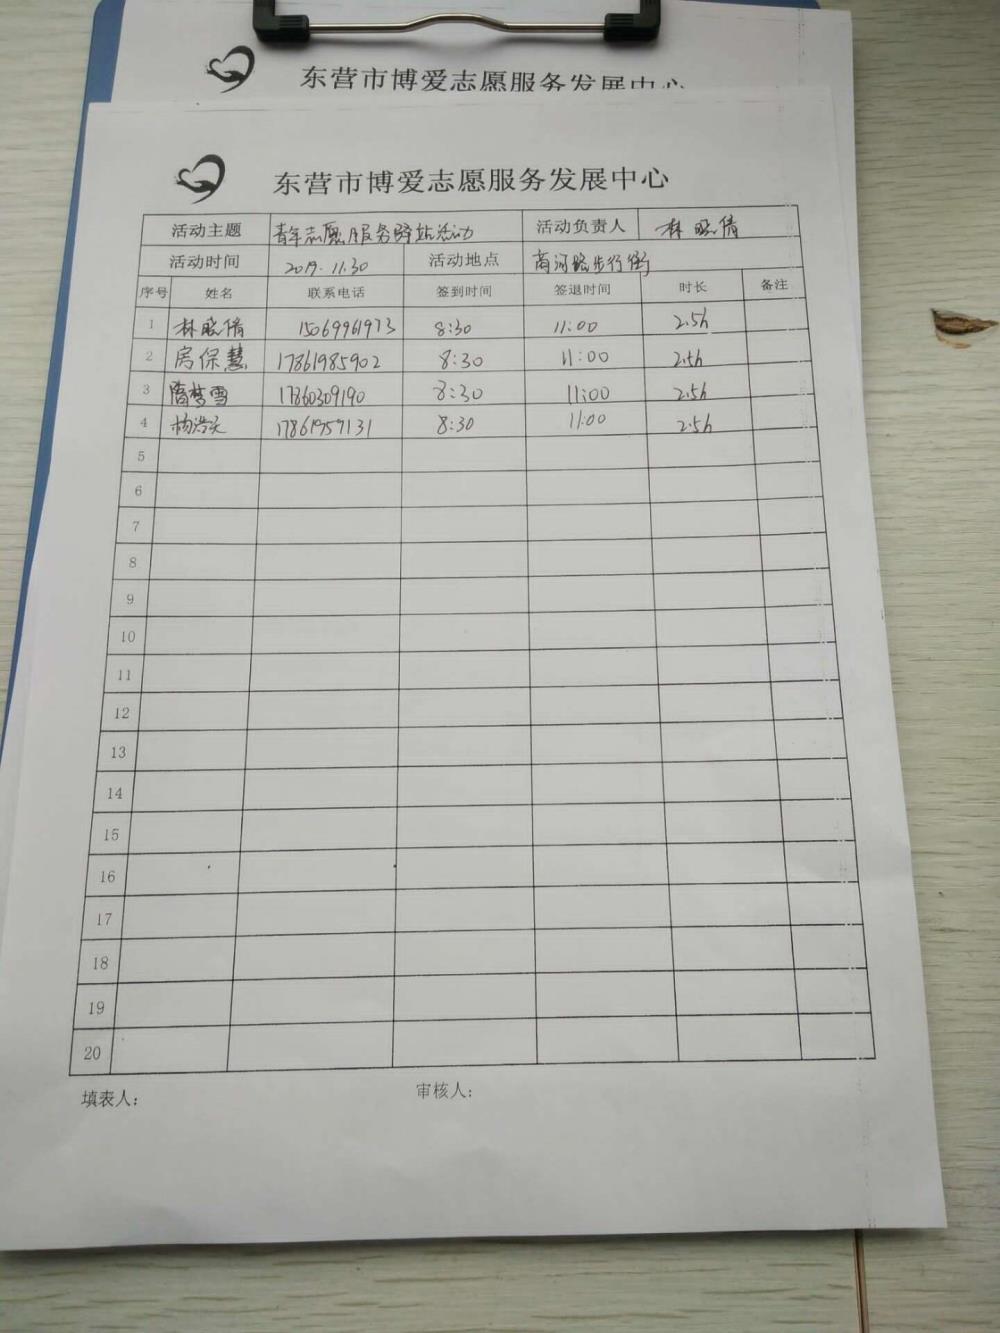 东营市博爱志愿服务发展中心
东营市博爱志愿服务发展中心
活动主题 青年志愿服务驿站活动 活动负责人 林晓倩
活动时间 2019.11.30 活动地点 商河路步行街
序号 姓名 联系电话 签到时间 签退时间 时长 备注
1 林晓倩 15069961973 8:30 11:00 2.5h
2 房保慧 17861985902 8:30 11:00 2.5h
3 隋梦雪 17860309190 8:30 11:00 2.5h
4 杨浩天 17861959131 8:30 11:00 2.5h
5
6
7
8
9
10
11
12
13
14
15
16
17
18
19
20
填表人： 审核人：